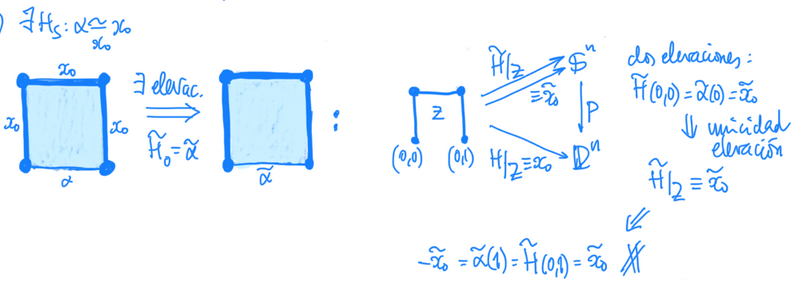 ) ∃ H_S : α ≃ x₀
x₀
x₀
x₀
x₀
α
∃ elevac.
⟹
H̃₀ = α̃
α̃
:
Z
(0,0) (0,1)
H̃/Z
≡ x̃₀
𝕊ⁿ
p
H/Z ≡ x₀
ℙⁿ
dos elevaciones:
H̃(0,0) = α̃(0) = x̃₀
⇓ unicidad
elevación
H̃/Z ≡ x̃₀
-x̃₀ = α̃(1) = H̃(0,1) = x̃₀